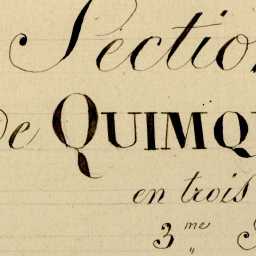 Sectio
de QUIMQ
en trois
3me